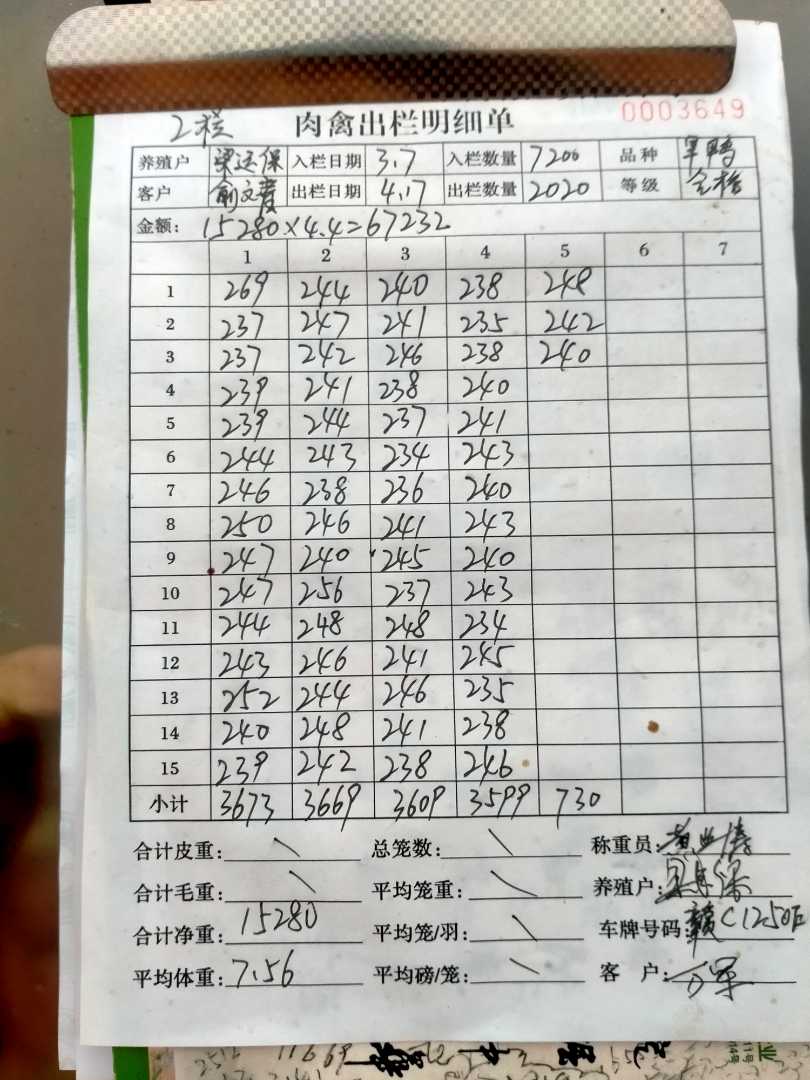 2栏 肉禽出栏明细单 0003649
养殖户 梁运保 入栏日期 3.7 入栏数量 7200 品种 旱鸭
客户 出栏日期 4.17 出栏数量 2020 等级 合格
金额: 15280×4.4=67232
1 2 3 4 5 6 7
1 269 244 240 238 248
2 237 247 241 235 242
3 237 242 246 238 240
4 239 241 238 240
5 239 244 237 241
6 244 243 234 243
7 246 238 236 240
8 250 246 241 243
9 247 240 245 240
10 247 256 237 243
11 244 248 248 234
12 243 246 241 245
13 252 244 246 235
14 240 248 241 238
15 239 242 238 246
小计 3673 3669 3609 3599 730
合计皮重: \ 总笼数: \ 称重员:
合计毛重: \ 平均笼重: \ 养殖户:
合计净重: 15280 平均笼/羽: \ 车牌号码: 赣C1250
平均体重: 7.56 平均磅/笼: \ 客 户: